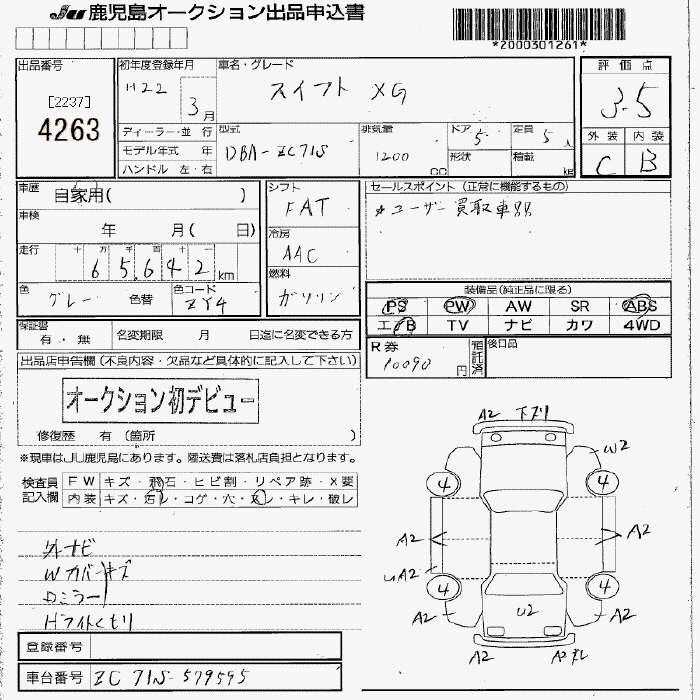 JU 鹿児島オークション出品申込書
*2000301261*
出品番号
[2237]
4263
初年度登録年月
H22
3月
車名・グレード
スイフト XG
評価点
3.5
外装 内装
C B
ディーラー・並行
モデル年式 年
ハンドル 左・右
型式
DBA-ZC71S
排気量
1200
CC
ドア
5
形状
定員
5人
積載
kg
車歴
自家用( )
車検
年 月( 日)
走行
十 万 千 百 十 一
6 5,6 4 2 km
色
グレー
色替
色コード
ZY4
シフト
FAT
冷房
AAC
燃料
ガソリン
セールスポイント (正常に機能するもの)
*ユーザー買取車!!
装備品(純正品に限る)
PS PW AW SR ABS
エ/B TV ナビ カワ 4WD
保証書
有・無
名変期限 月 日迄に名変できる方
R券
10090
円
預託済
後日品
出品店申告欄(不良内容・欠品など具体的に記入して下さい)
オークション初デビュー
修復歴 有(箇所 )
※現車はJU鹿児島にあります。陸送費は落札店負担となります。
検査員記入欄
FW キズ・飛石・ヒビ割・リペア跡・X要
内装 キズ・汚レ・コゲ・穴・スレ・キレ・破レ
外ナビ
Wカバーキズ
Dミラー〃
Hライトくもり
登録番号
車台番号 ZC71S-579595
A2 下ズリ
W2
4 4
A2 A2
UA2
4 4
A2 U2 A2
A2 A2